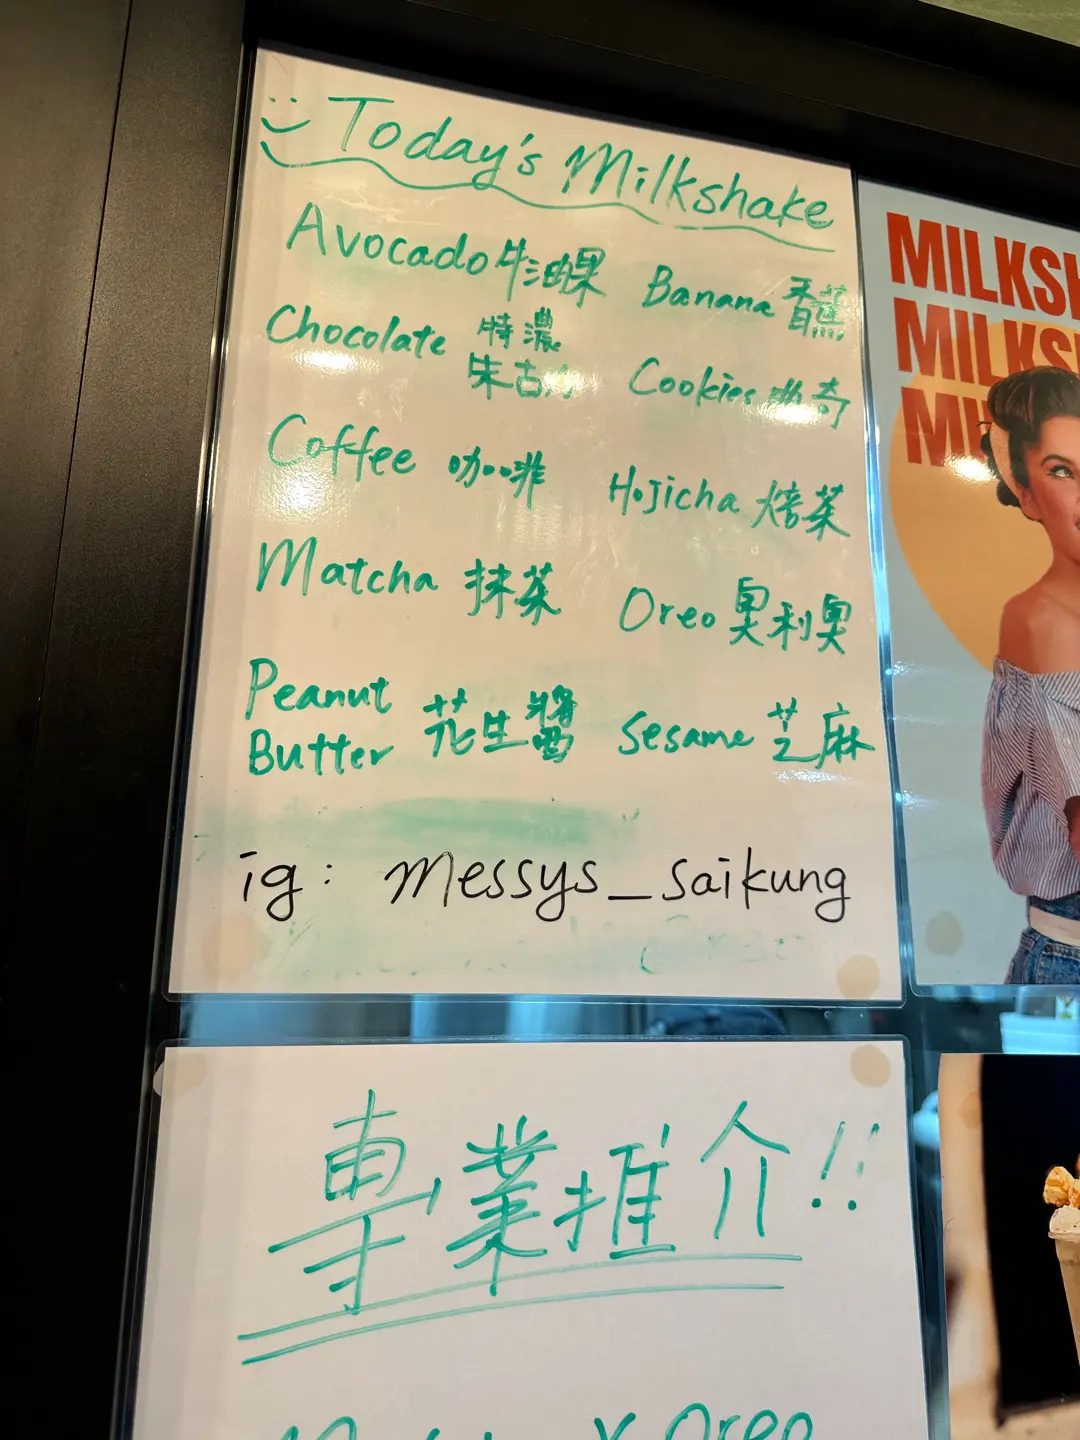 Today's Milkshake
Avocado 牛油果
Banana 香蕉
Chocolate 特濃
朱古力
Cookies 曲奇
Coffee 咖啡
Hojicha 焙茶
Matcha 抹茶
Oreo 奧利奧
Peanut
Butter 花生醬
Sesame 芝麻
ig: messys_saikung
MILKSH
MILKS
MI
專業推介!!
x Oreo